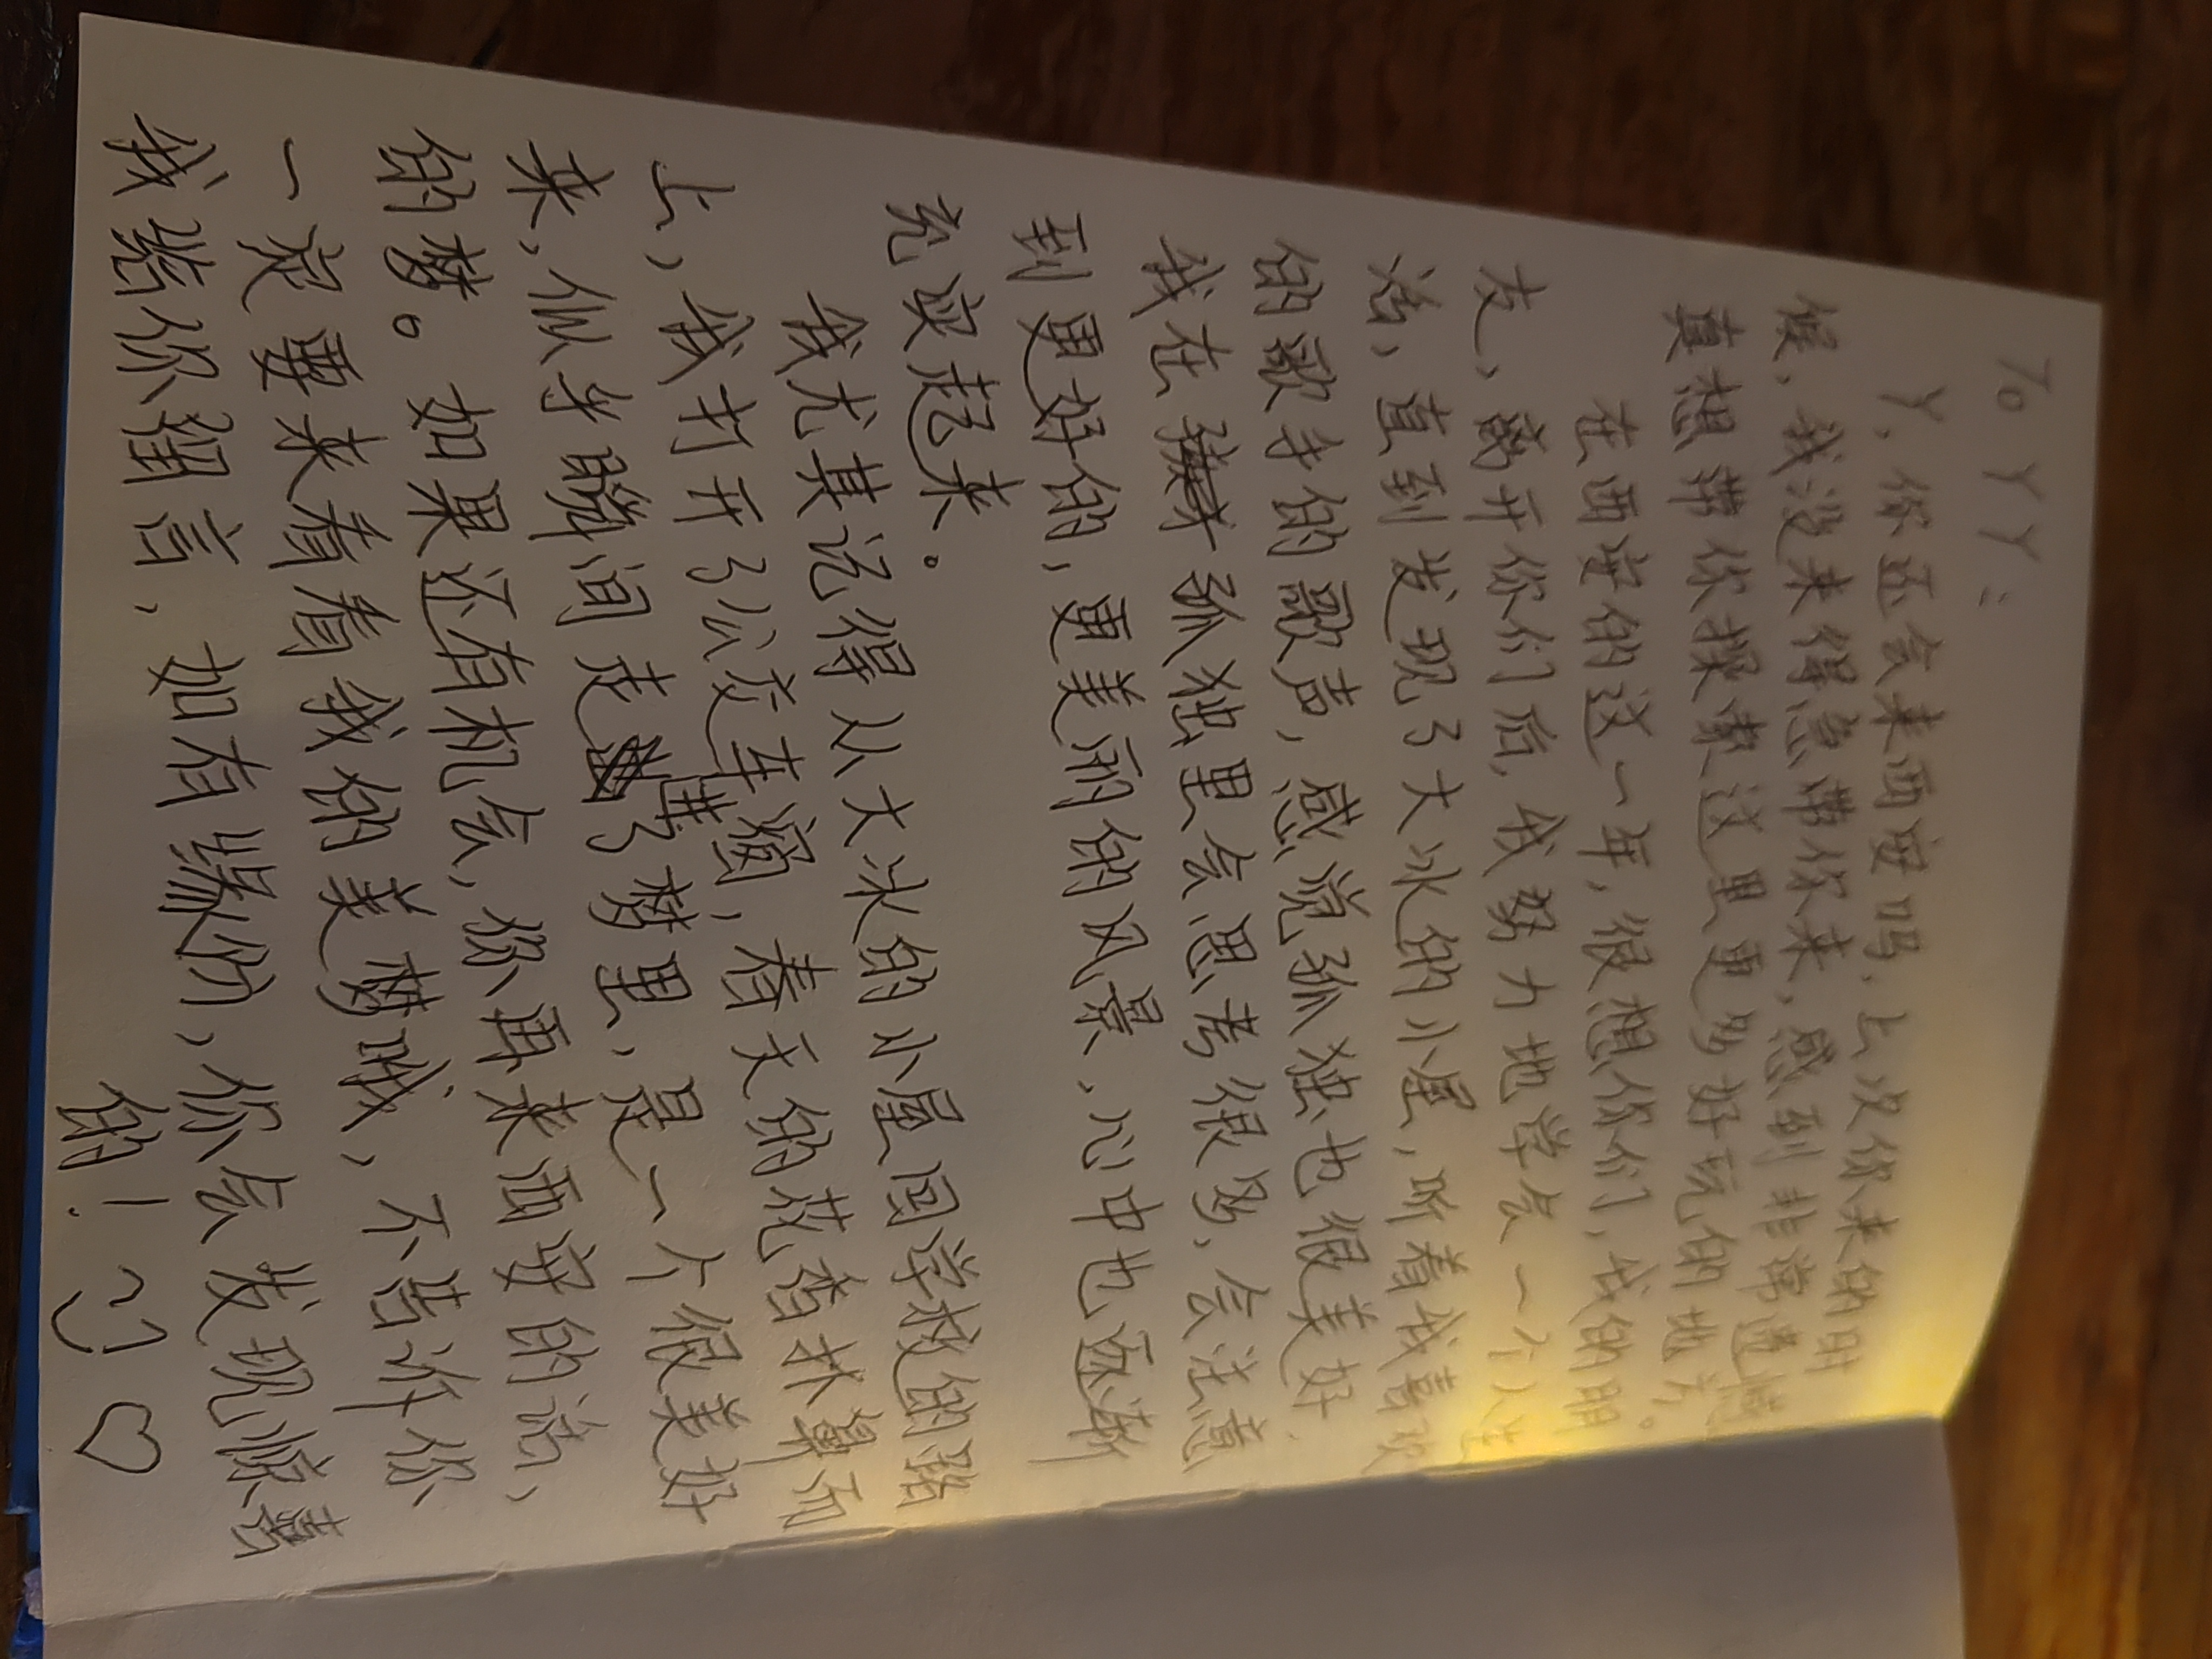 To YY：
Y，你还会来西安吗，上次你来的时
候，我没来得急带你来，感到非常遗憾
真想带你探索这里更多好玩的地方。
在西安的这一年，很想你们，我的朋
友，离开你们后，我努力地学会一个人生
活，直到发现了大冰的小屋，听着我喜欢
的歌手的歌声，感觉孤独也很美好，
我在孤独里会思考很多，会注意
到更好的，更美丽的风景、心中也逐渐
充实起来。
我尤其记得从大冰的小屋回学校的路
上，我打开了公交车窗，春天的花香扑鼻而
来，似乎瞬间走进了梦里，是一个很美好
的梦。如果还有机会，你再来西安的话，
一定要来看看我的美梦哦，不告诉你
我给你留言，如有缘份，你会发现惊喜
的！♡